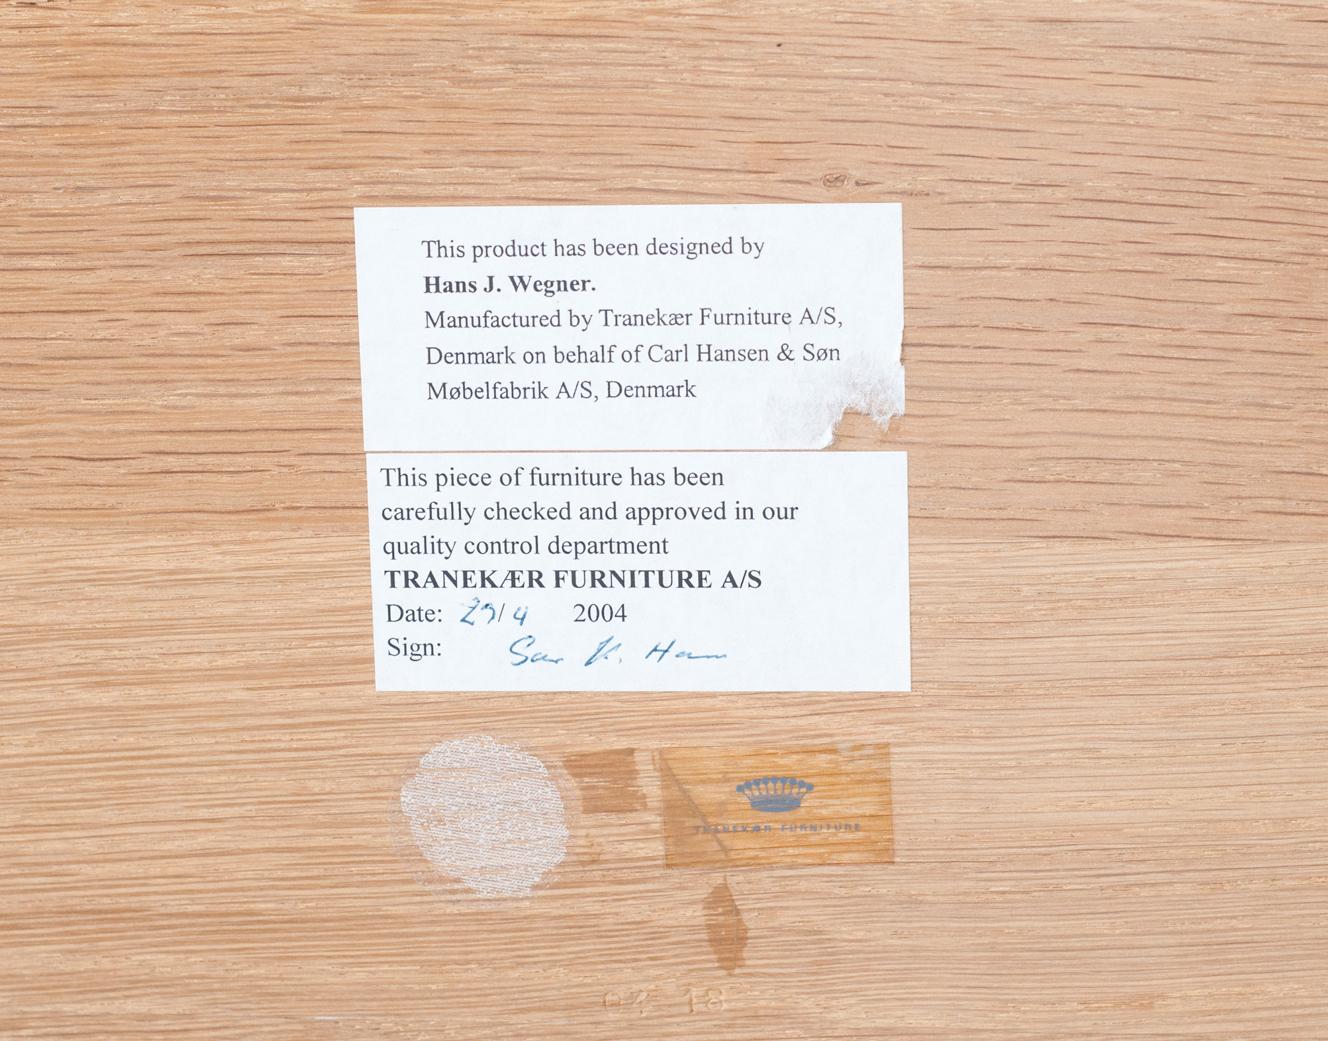 This product has been designed by
Hans J. Wegner.
Manufactured by Tranekær Furniture A/S,
Denmark on behalf of Carl Hansen & Søn
Møbelfabrik A/S, Denmark
This piece of furniture has been
carefully checked and approved in our
quality control department
TRANEKÆR FURNITURE A/S
Date: 29/4 2004
Sign:
TRANEKÆR FURNITURE